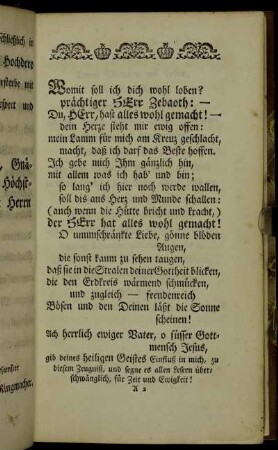 schließlich in
Hochdero
ersterbe mit
Respect und
, Gnä-
Höchst-
Herrn
Ringmacher.
Womit soll ich dich wohl loben?
prächtiger HErr Zebaoth: —
Du, HErr, hast alles wohl gemacht! —
dein Herze steht mir ewig offen:
mein Lamm für mich am Kreuz geschlacht,
macht, daß ich darf das Beste hoffen.
Ich gebe mich Ihm gänzlich hin,
mit allem was ich hab' und bin;
so lang' ich hier noch werde wallen,
soll dis aus Herz und Munde schallen:
(auch wenn die Hütte bricht und kracht,)
der HErr hat alles wohl gemacht!
O unumschränkte Liebe, gönne blöden
Augen,
die sonst kaum zu sehen taugen,
daß sie in die Stralen deiner Gottheit blicken,
die den Erdkreis wärmend schmücken,
und zugleich — freudenreich
Bösen und den Deinen läßt die Sonne
scheinen!
Ach herrlich ewiger Vater, o süsser Gott-
mensch Jesus,
gib deines heiligen Geistes Einfluß in mich, zu
diesem Zeugniß, und segne es allen Lesern über-
schwänglich, für Zeit und Ewigkeit!
A 2